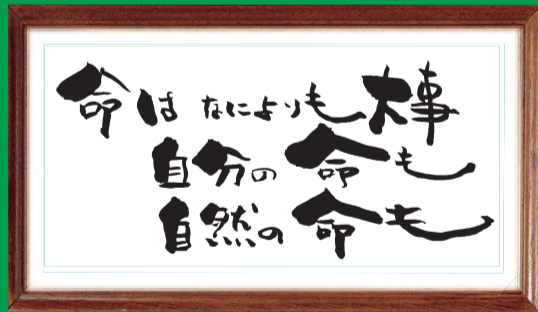 命はなによりも大事
自分の命も
自然の命も